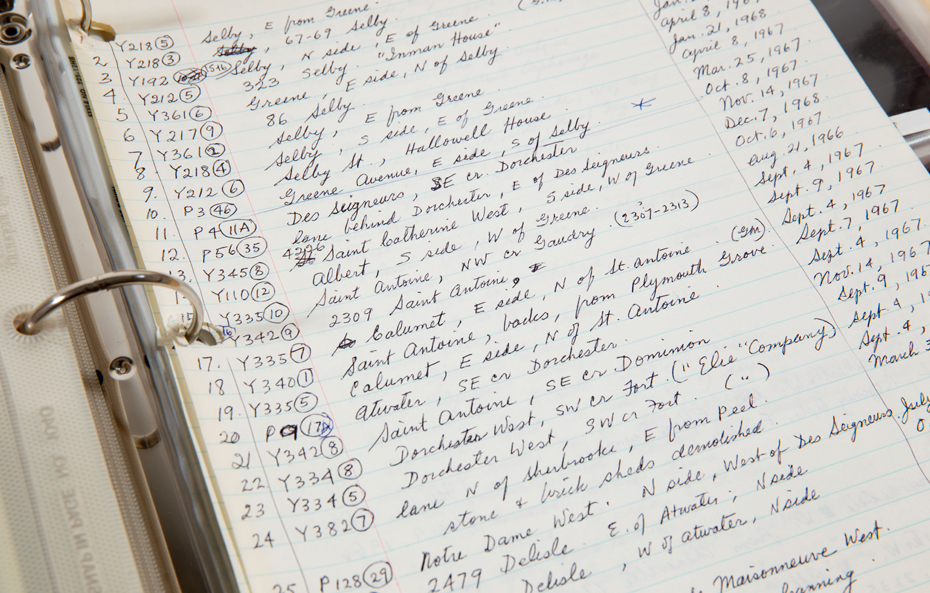 Y218 (5) Selby, E from Greene.
2. Y218 (3) 67-69 Selby.
3 Y192 Selby, N side, E of Greene
4 Y212 (5) 323 Selby. "Inman House"
5 Y361 (6) Greene, E side, N of Selby
6 Y217 (9) 86 Selby.
7 Y361 (2) Selby, E from Greene.
8. Y218 (4) Selby, S side, E of Greene
9. Y212 (6) Selby St., Hallowell House
10. P3 (46) Greene Avenue, E side, S of Selby.
11. P4 (11A) Des Seigneurs, SE cr. Dorchester
12. P56 (35) lane behind Dorchester, E of Des Seigneurs.
13. Y345 (8) Saint Catherine West, S side, W of Greene
Y110 (12) Albert, S side, W of Greene.
15 Y335 (10) Saint Antoine, NW cr Gaudry. (2307-2313)
16 Y342 (9) 2309 Saint Antoine
17. Y335 (7) Calumet, E side, N of St. Antoine (Gm)
18 Y340 (1) Saint Antoine, backs, from Plymouth Grove
19. Y335 (5) Calumet, E side, N of St. Antoine
20 P9 (17A) Atwater, SE cr Dorchester.
21 Y342 (8) Saint Antoine, SE cr Dominion
22 Y334 (8) Dorchester West, SW cr Fort. ("Elie" Company)
23 Y334 (5) Dorchester West, SW cr Fort. ( " )
24 Y382 (7) lane N of Sherbrooke, E from Peel.
stone & brick sheds demolished.
25 P128 (29) Notre Dame West. N side, West of Des Seigneurs.
2479 Delisle. E. of Atwater, N side
Delisle, W of Atwater, N side
Maisonneuve West.
Jan.
April 8, 196
Jan. 21, 1968
April 8, 1967
Mar. 25, 1967
Oct. 8, 1967
Nov. 14, 1967
Dec. 7, 1968
Oct. 6, 1967
Aug. 21, 1966
Sept. 4, 1967
Sept. 9, 1967
Sept. 4, 1967
Sept. 7, 1967
Sept. 4, 1967
Nov. 14, 1967
Sept. 9, 196
Sept 4, 19
Sept. 4
March 3
July